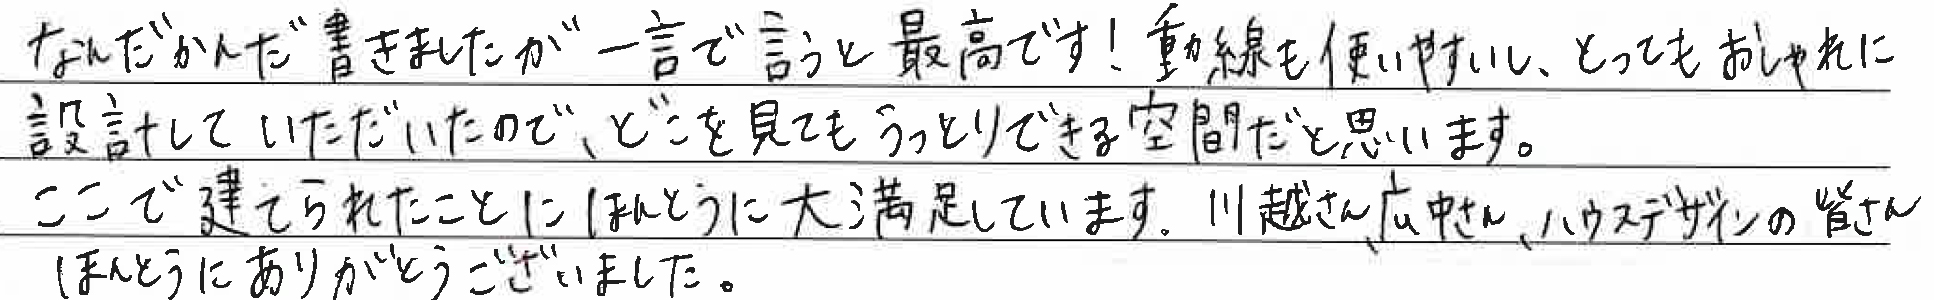 なんだかんだ書きましたが一言で言うと最高です！動線も使いやすいし、とってもおしゃれに
設計していただいたので、どこを見てもうっとりできる空間だと思います。
ここで建てられたことにほんとうに大満足しています。川越さん、広中さん、ハウスデザインの皆さん
ほんとうにありがとうございました。